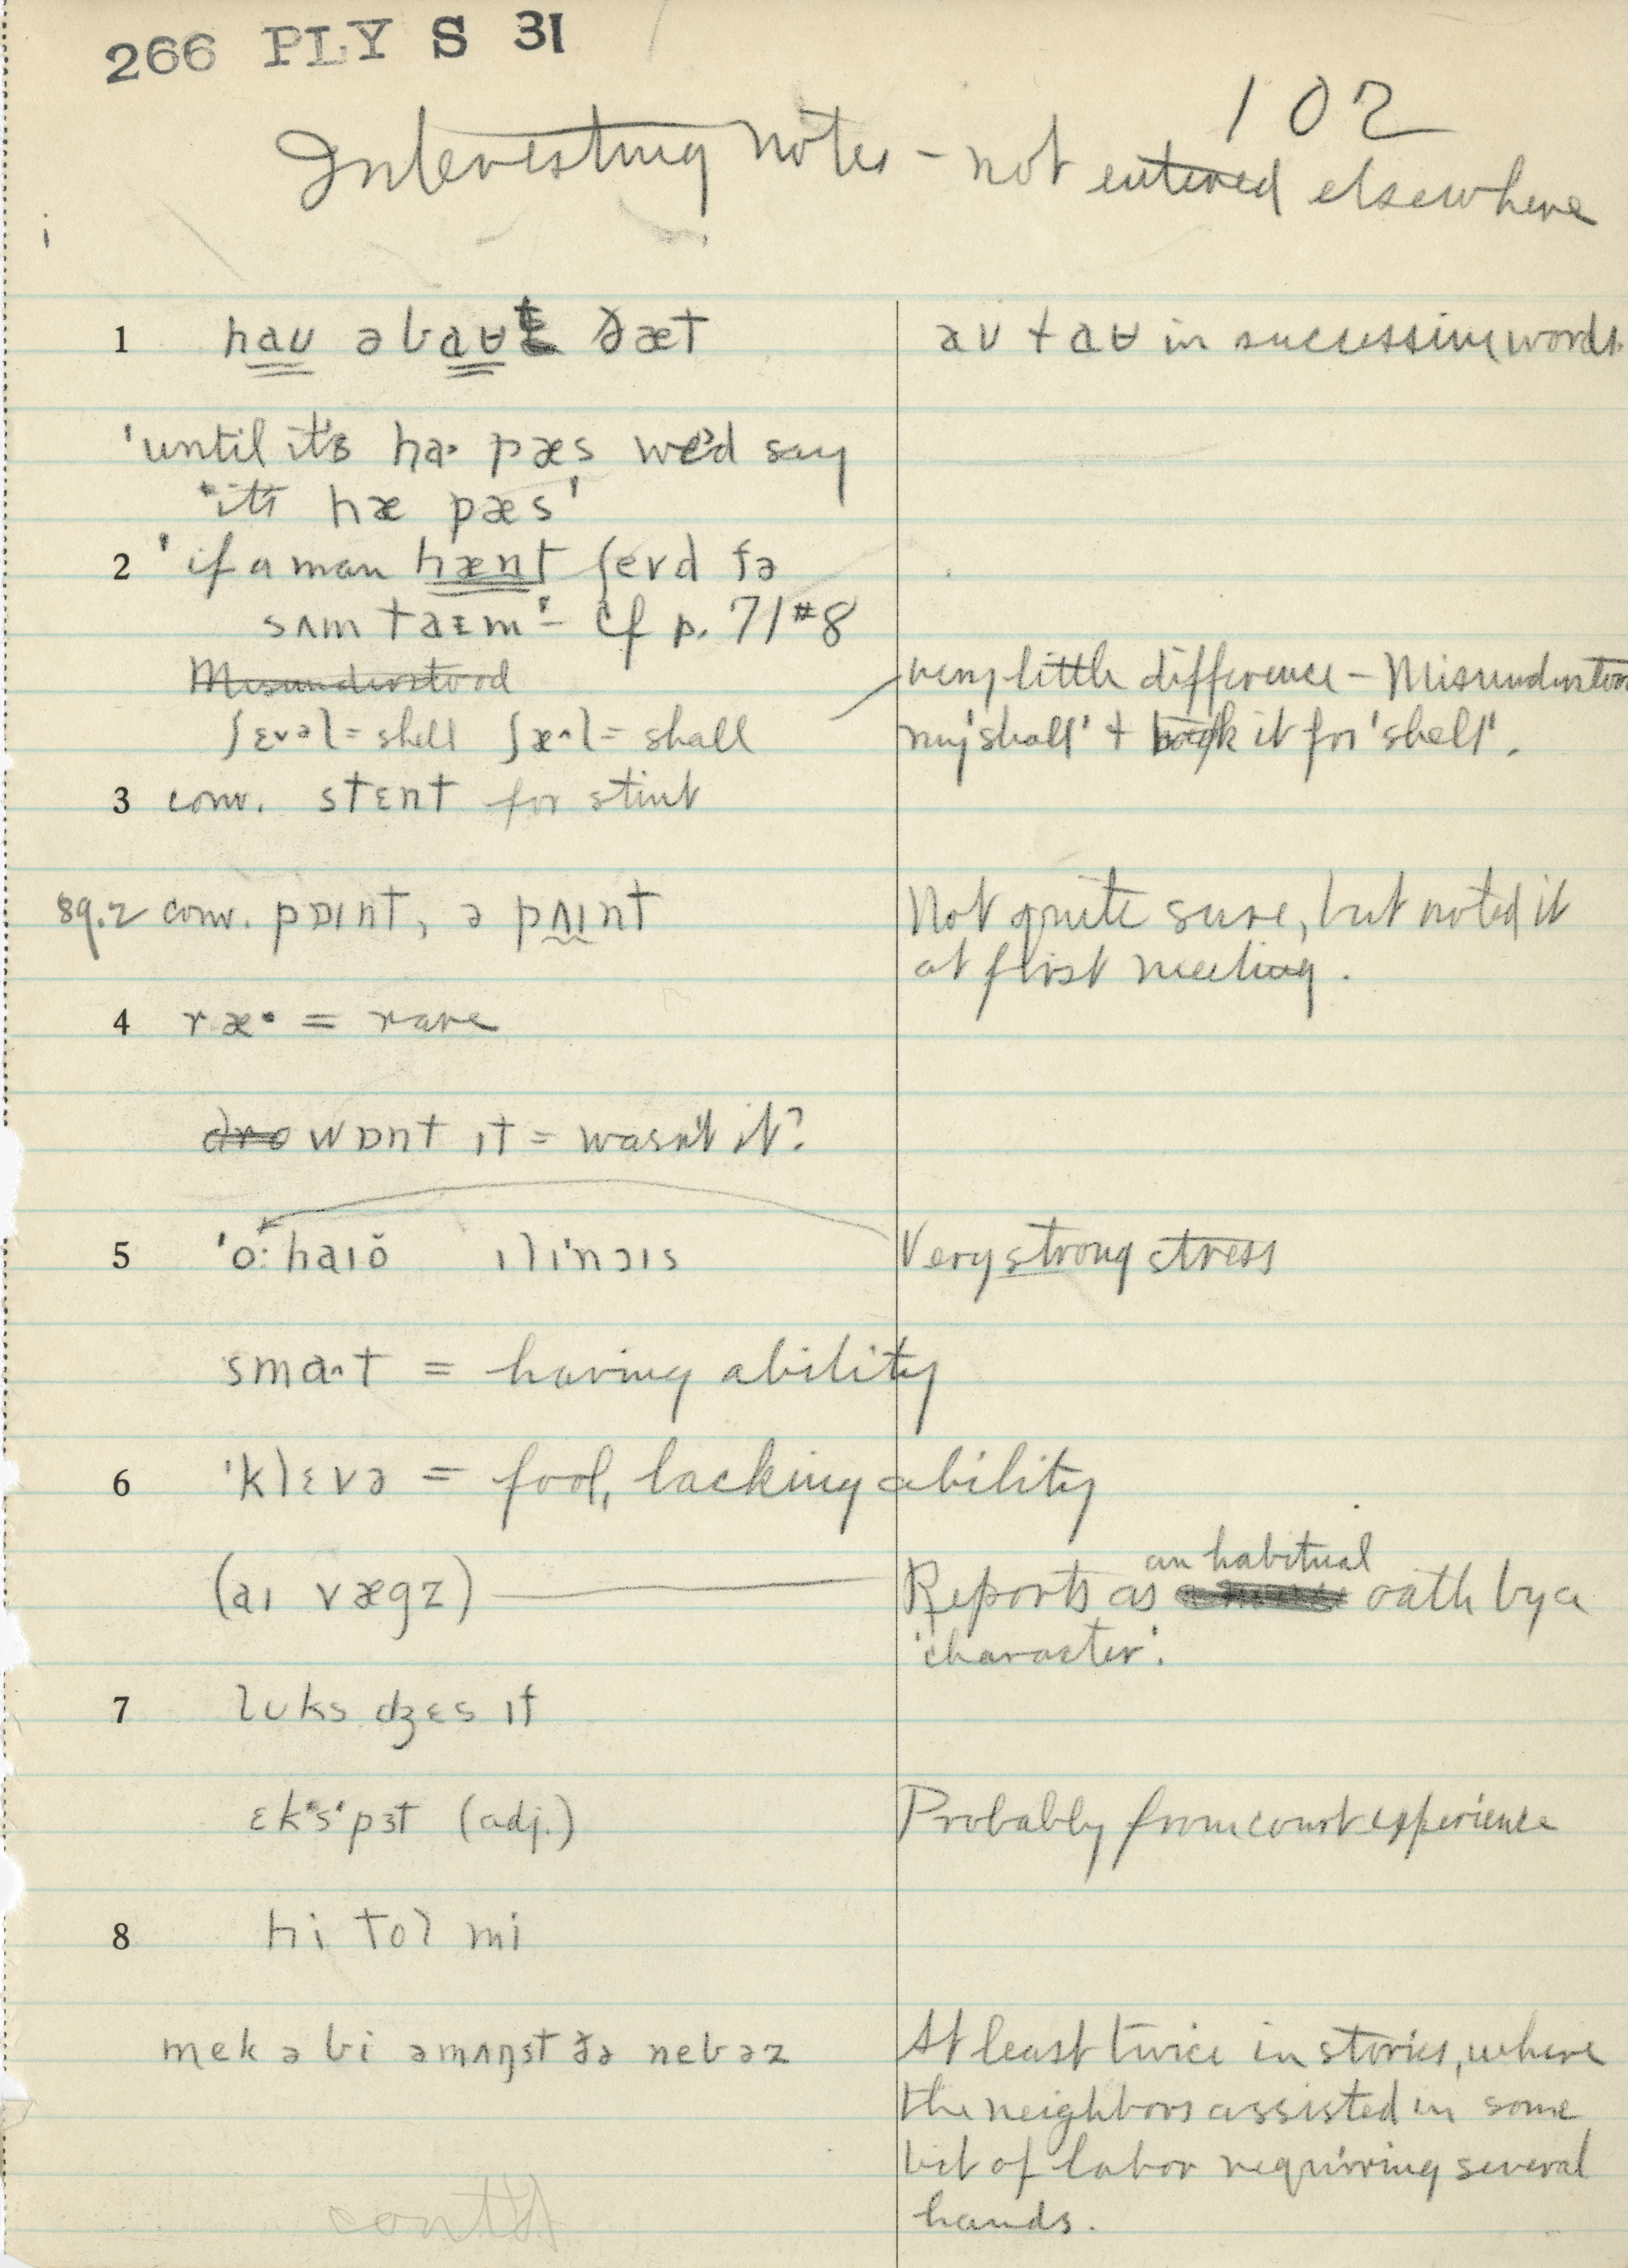 266 PLY S 31
102
Interesting notes – not entered elsewhere
1 haʊ əbaʉt ðæt
aʊ + aʉ in successive words.
'until it's ha· pæs we'd say
"it's hæ pæs'
2 'if a man hænt ʃevd fə
sʌm taɪm'– cf p. 71#8
Misunderstood
very little difference – Misunderstood
ʃɛvəl = shell ʃæ^l = shall
my 'shall' + took it for 'shell'.
3 conv. stɛnt for stint
89.2 conv. pɒɪnt, ə pʌɪnt
Not quite sure, but noted it
at first meeting.
4 ræ· = rare
wɒnt ɪt = wasn't it?
5 'o: haɪŏ ɪlɪ'nɔɪs
Very strong stress
sma^t = having ability
6 'klɛvə = fool, lacking ability
(aɪ vægz)
an habitual
Reports as oath by a
'character'.
7 lʊks dʒɛs ɪt
ɛk's'pɜt (adj.)
Probably from court experience
8 hi tol mi
mek ə bi əmʌŋst ðə nebəz
At least twice in stories, where
the neighbors assisted in some
bit of labor requiring several
hands.
cont'd